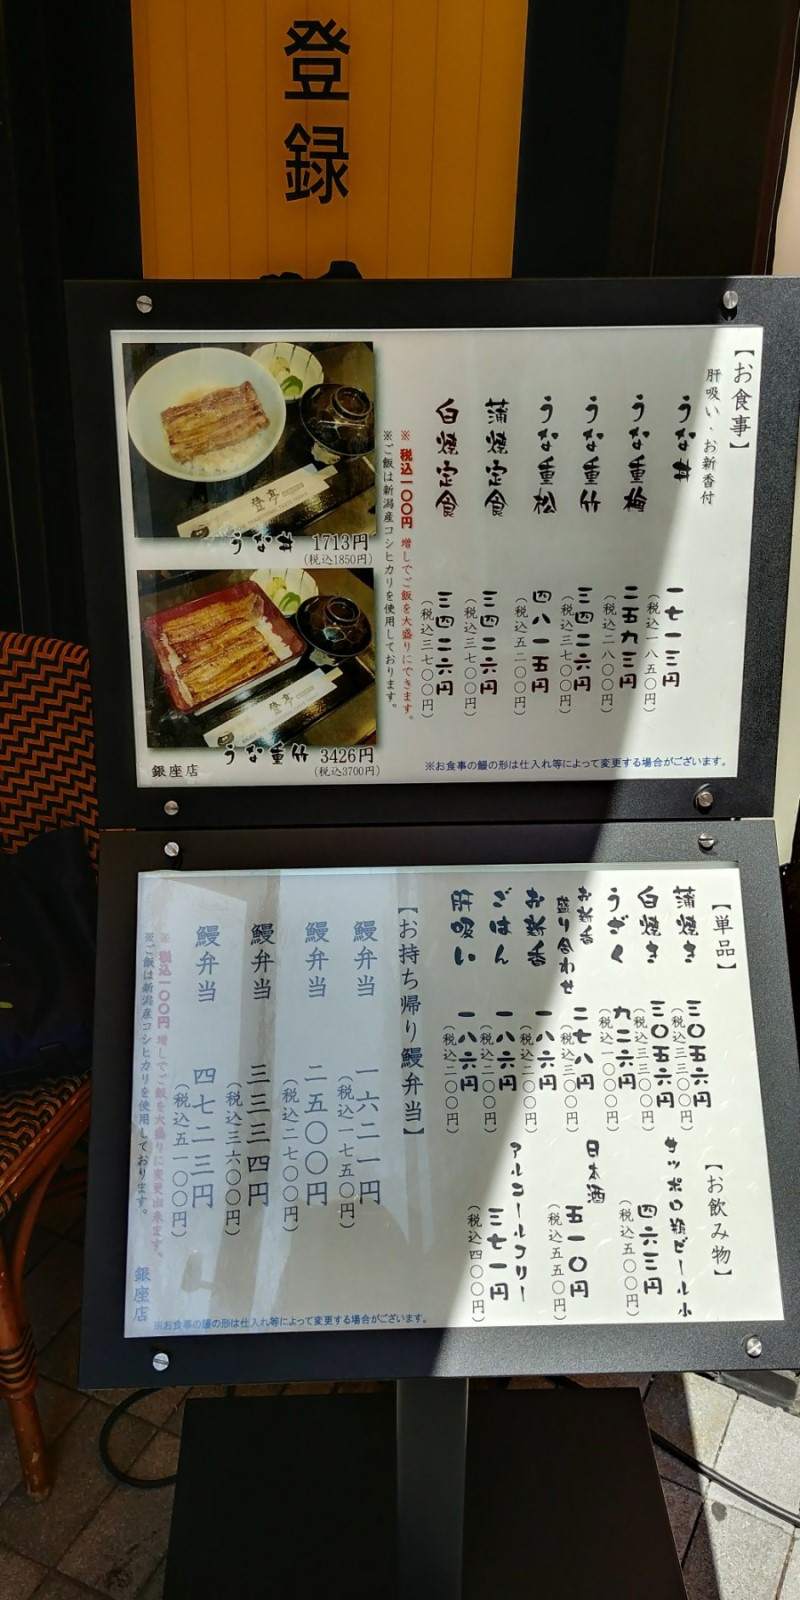 登録
【お食事】
肝吸い・お新香付
うな丼
一七一三円
(税込一八五〇円)
うな重梅
二五九三円
(税込二八〇〇円)
うな重竹
三四二六円
(税込三七〇〇円)
うな重松
四八一五円
(税込五二〇〇円)
蒲焼定食
三四二六円
(税込三七〇〇円)
白焼定食
三四二六円
(税込三七〇〇円)
※税込一〇〇円増しでご飯を大盛りにできます。
※ご飯は新潟産コシヒカリを使用しております。
登亭
うな丼 1713円
(税込1850円)
登亭
うな重竹 3426円
(税込3700円)
銀座店
※お食事の鰻の形は仕入れ等によって変更する場合がございます。
【単品】
蒲焼き
三〇五六円
(税込三三〇〇円)
白焼き
三〇五六円
(税込三三〇〇円)
うざく
九二六円
(税込一〇〇〇円)
お新香
盛り合わせ
二七八円
(税込三〇〇円)
お新香
一八六円
(税込二〇〇円)
ごはん
一八六円
(税込二〇〇円)
肝吸い
一八六円
(税込二〇〇円)
【お飲み物】
サッポロ瓶ビール小
四六三円
(税込五〇〇円)
日本酒
五一〇円
(税込五五〇円)
アルコールフリー
三七一円
(税込四〇〇円)
【お持ち帰り鰻弁当】
鰻弁当
一六二一円
(税込一七五〇円)
鰻弁当
二五〇〇円
(税込二七〇〇円)
鰻弁当
三三三四円
(税込三六〇〇円)
鰻弁当
四七二三円
(税込五一〇〇円)
※税込一〇〇円増しでご飯を大盛りに変更出来ます。
※ご飯は新潟産コシヒカリを使用しております。
銀座店
※お食事の鰻の形は仕入れ等によって変更する場合がございます。